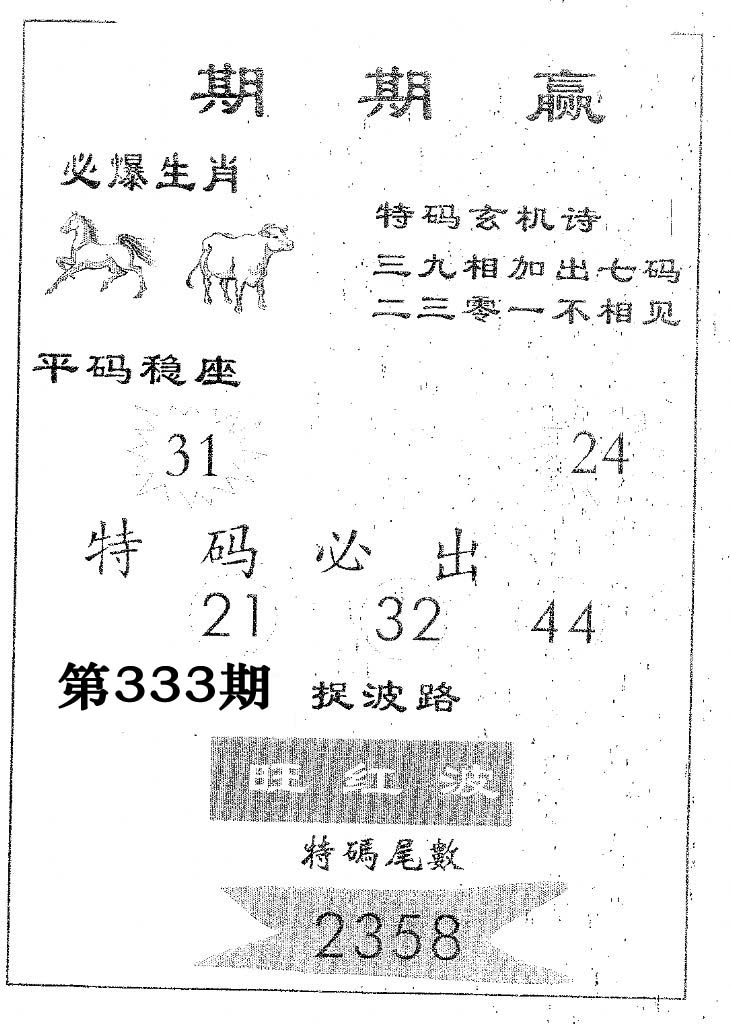 期期赢
必爆生肖
特码玄机诗
三九相加出七码
二三零一不相见
平码稳座
31 24
特码必出
21 32 44
第333期 捉波路
旺红波
特碼尾數
2358